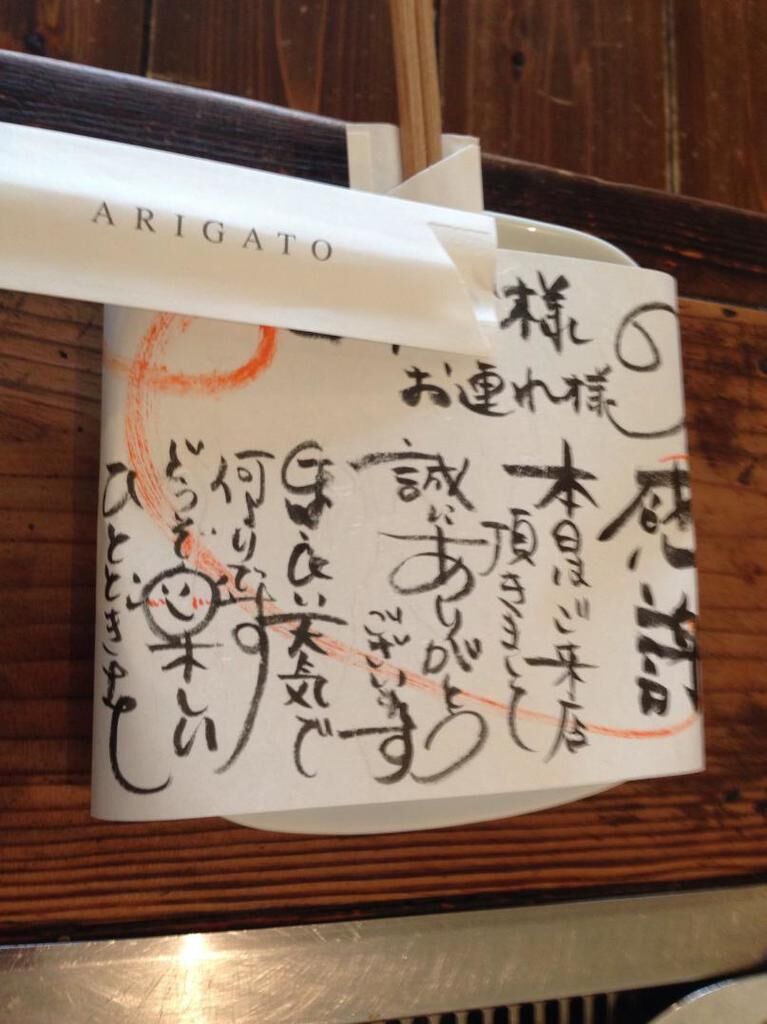 ARIGATO
様
お連れ様
感謝
本日はご来店
頂きまして
誠にありがとう
ございます
ほ良い天気で
何よりです
どうぞ楽しい
ひとときを